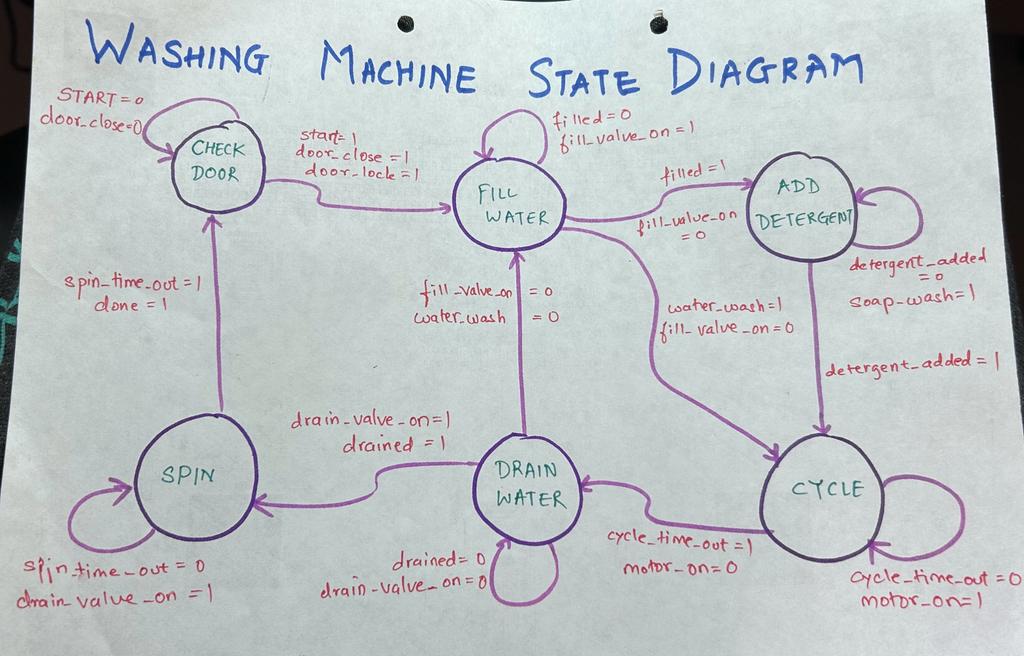 WASHING MACHINE STATE DIAGRAM
START = 0
door_close=0
CHECK
DOOR
start=1
door_close =1
door_lock =1
filled = 0
fill_valve_on = 1
FILL
WATER
filled = 1
fill_valve_on
= 0
ADD
DETERGENT
detergent_added
= 0
soap_wash=1
spin_time_out=1
done = 1
fill_valve_on = 0
water_wash = 0
water_wash=1
fill_valve_on=0
detergent_added = 1
SPIN
drain_valve_on=1
drained = 1
DRAIN
WATER
CYCLE
spin_time_out = 0
drain_valve_on =1
drained= 0
drain_valve_on=0
cycle_time_out=1
motor_on=0
cycle_time_out=0
motor_on=1